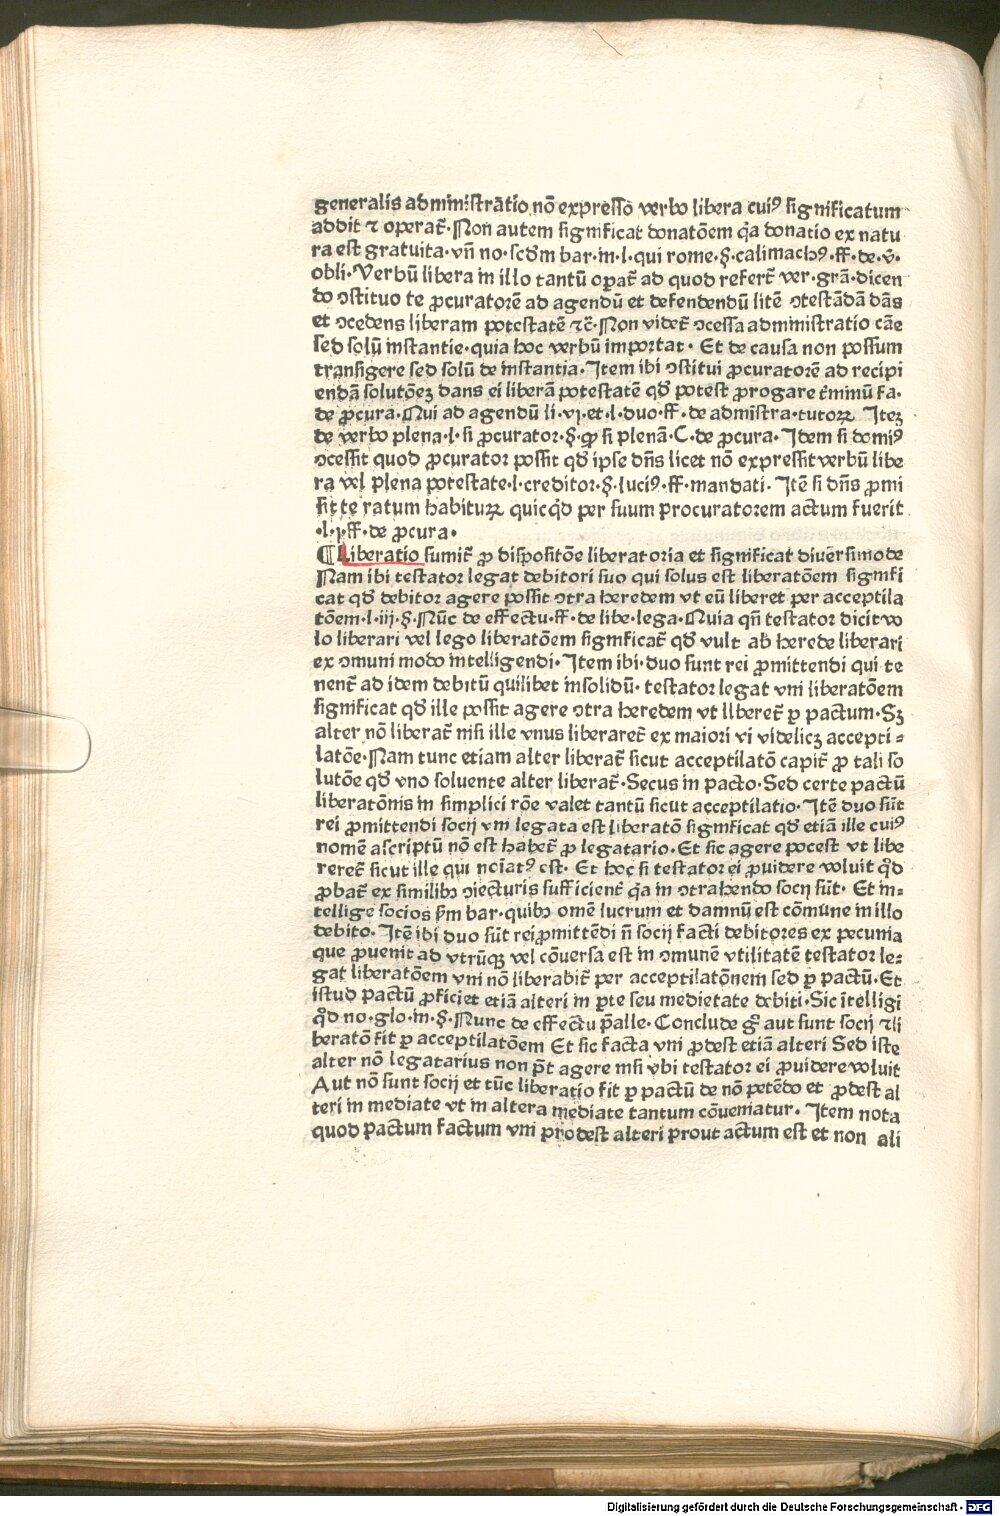 generalis administrātio nō expresso verbo libera cuiꝰ significatum
addit ⁊ operat᷑. Non autem significat donatōem q̇a donatio ex natu
ra est gratuita. vn̄ no. scd̄m bar. in. l. qui rome. §. calimachꝰ. ff. de. v̄.
obli. Verbū libera in illo tantū oꝑat᷑ ad quod refert᷑ ver. grā. dicen
do ꝯstituo te ꝓcuratorē ad agendū et defendendū litē ꝯtestādā dās
et ꝯcedens liberam potestatē ⁊c̄. Non videt᷑ ꝯcessa administratio cāe
sed solū instantie. quia hoc verbū importat. Et de causa non possum
transigere sed solū de instantia. Item ibi ꝯstitui ꝓcuratorē ad recipi
endā solutōeꝫ dans ei liberā potestatē qd̄ potest ꝓrogare t̄minū fa.
de ꝓcura. Qui ad agendū li. vj. et. l. duo. ff. de admīstra. tutoꝝ. Iteꝫ
de verbo plena. l. si ꝓcurator. §. ꝙ si plenā. C. de ꝓcura. Idem si domiꝰ
ꝯcessit quod ꝓcurator possit qd̄ ipse dn̄s licet nō expressit verbū libe
ra vel plena potestate. l. creditor. §. luciꝰ. ff. mandati. Itē si dn̄s ꝓmi
sit te ratum habituꝝ quicqd̄ per suum procuratorem actum fuerit
.l. j. ff. de ꝓcura.
¶ Liberatio sumit᷑ ꝓ dispositōe liberatoria et significat diuersimode
Nam ibi testator legat debitori suo qui solus est liberatōem signifi
cat qd̄ debitor agere possit ꝯtra heredem vt eū liberet per acceptila
tōem. l. iij. §. Nūc de effectu. ff. de libe. lega. Quia qn̄ testator dicit vo
lo liberari vel lego liberatōem significat᷑ qd̄ vult ab herede liberari
ex ꝯmuni modo intelligendi. Item ibi. duo sunt rei ꝓmittendi qui te
nent᷑ ad idem debitū quilibet insolidū. testator legat vni liberatōem
significat qd̄ ille possit agere ꝯtra heredem vt liberet᷑ ꝑ pactum. Sꝫ
alter nō liberat᷑ nisi ille vnus liberaret᷑ ex maiori vi videlicꝫ accepti⸗
latōe. Nam tunc etiam alter liberat᷑ sicut acceptilatōem capit᷑ ꝓ tali so
lutōe qd̄ vno soluente alter liberat᷑. Secus in pacto. Sed certe pactū
liberatōnis in simplici rōe valet tantū sicut acceptilatio. Itē duo sūt
rei ꝓmittendi socij vni legata est liberatō significat qd̄ etiā ille cuiꝰ
nomē ascriptū nō est habet᷑ ꝓ legatario. Et sic agere potest vt libe
reret᷑ sicut ille qui nc̄iatꝰ est. Et hoc si testator ei ꝓuidere voluit qd̄
ꝓbat᷑ ex similibꝫ ꝯiecturis sufficient᷑ q̇a in ꝯtrahendo socij sūt. Et in⸗
tellige socios ẜm bar. quibꝫ omē lucrum et damnū est cōmune in illo
debito. Itē ibi duo sūt rei ꝓmittēdi n̄ socij facti debitores ex pecunia
que ꝓuenit ad vtrūqꝫ vel cōuersa est in ꝯmunē vtilitatē testator le⸗
gat liberatōem vni nō liberabit᷑ per acceptilatōnem sed ꝑ pactū. Et
istud pactū ꝓficiet etiā alteri in ꝑte seu medietate debiti. Sic ītelligi
qd̄ no. glo. in. §. Nunc de effectu p̄alle. Conclude gͦ aut sunt socij ⁊ li
beratō fit ꝑ acceptilatōem Et sic facta vni ꝓdest etiā alteri Sed iste
alter nō legatarius non pōt agere nisi vbi testator ei ꝓuidere voluit
Aut nō sunt socij et tūc liberatio fit ꝑ pactū de nō petēdo et ꝓdest al
teri in mediate vt in altera mediate tantum cōueniatur. Item nota
quod pactum factum vni prodest alteri prout actum est et non ali
Digitalisierung gefördert durch die Deutsche Forschungsgemeinschaft - DFG